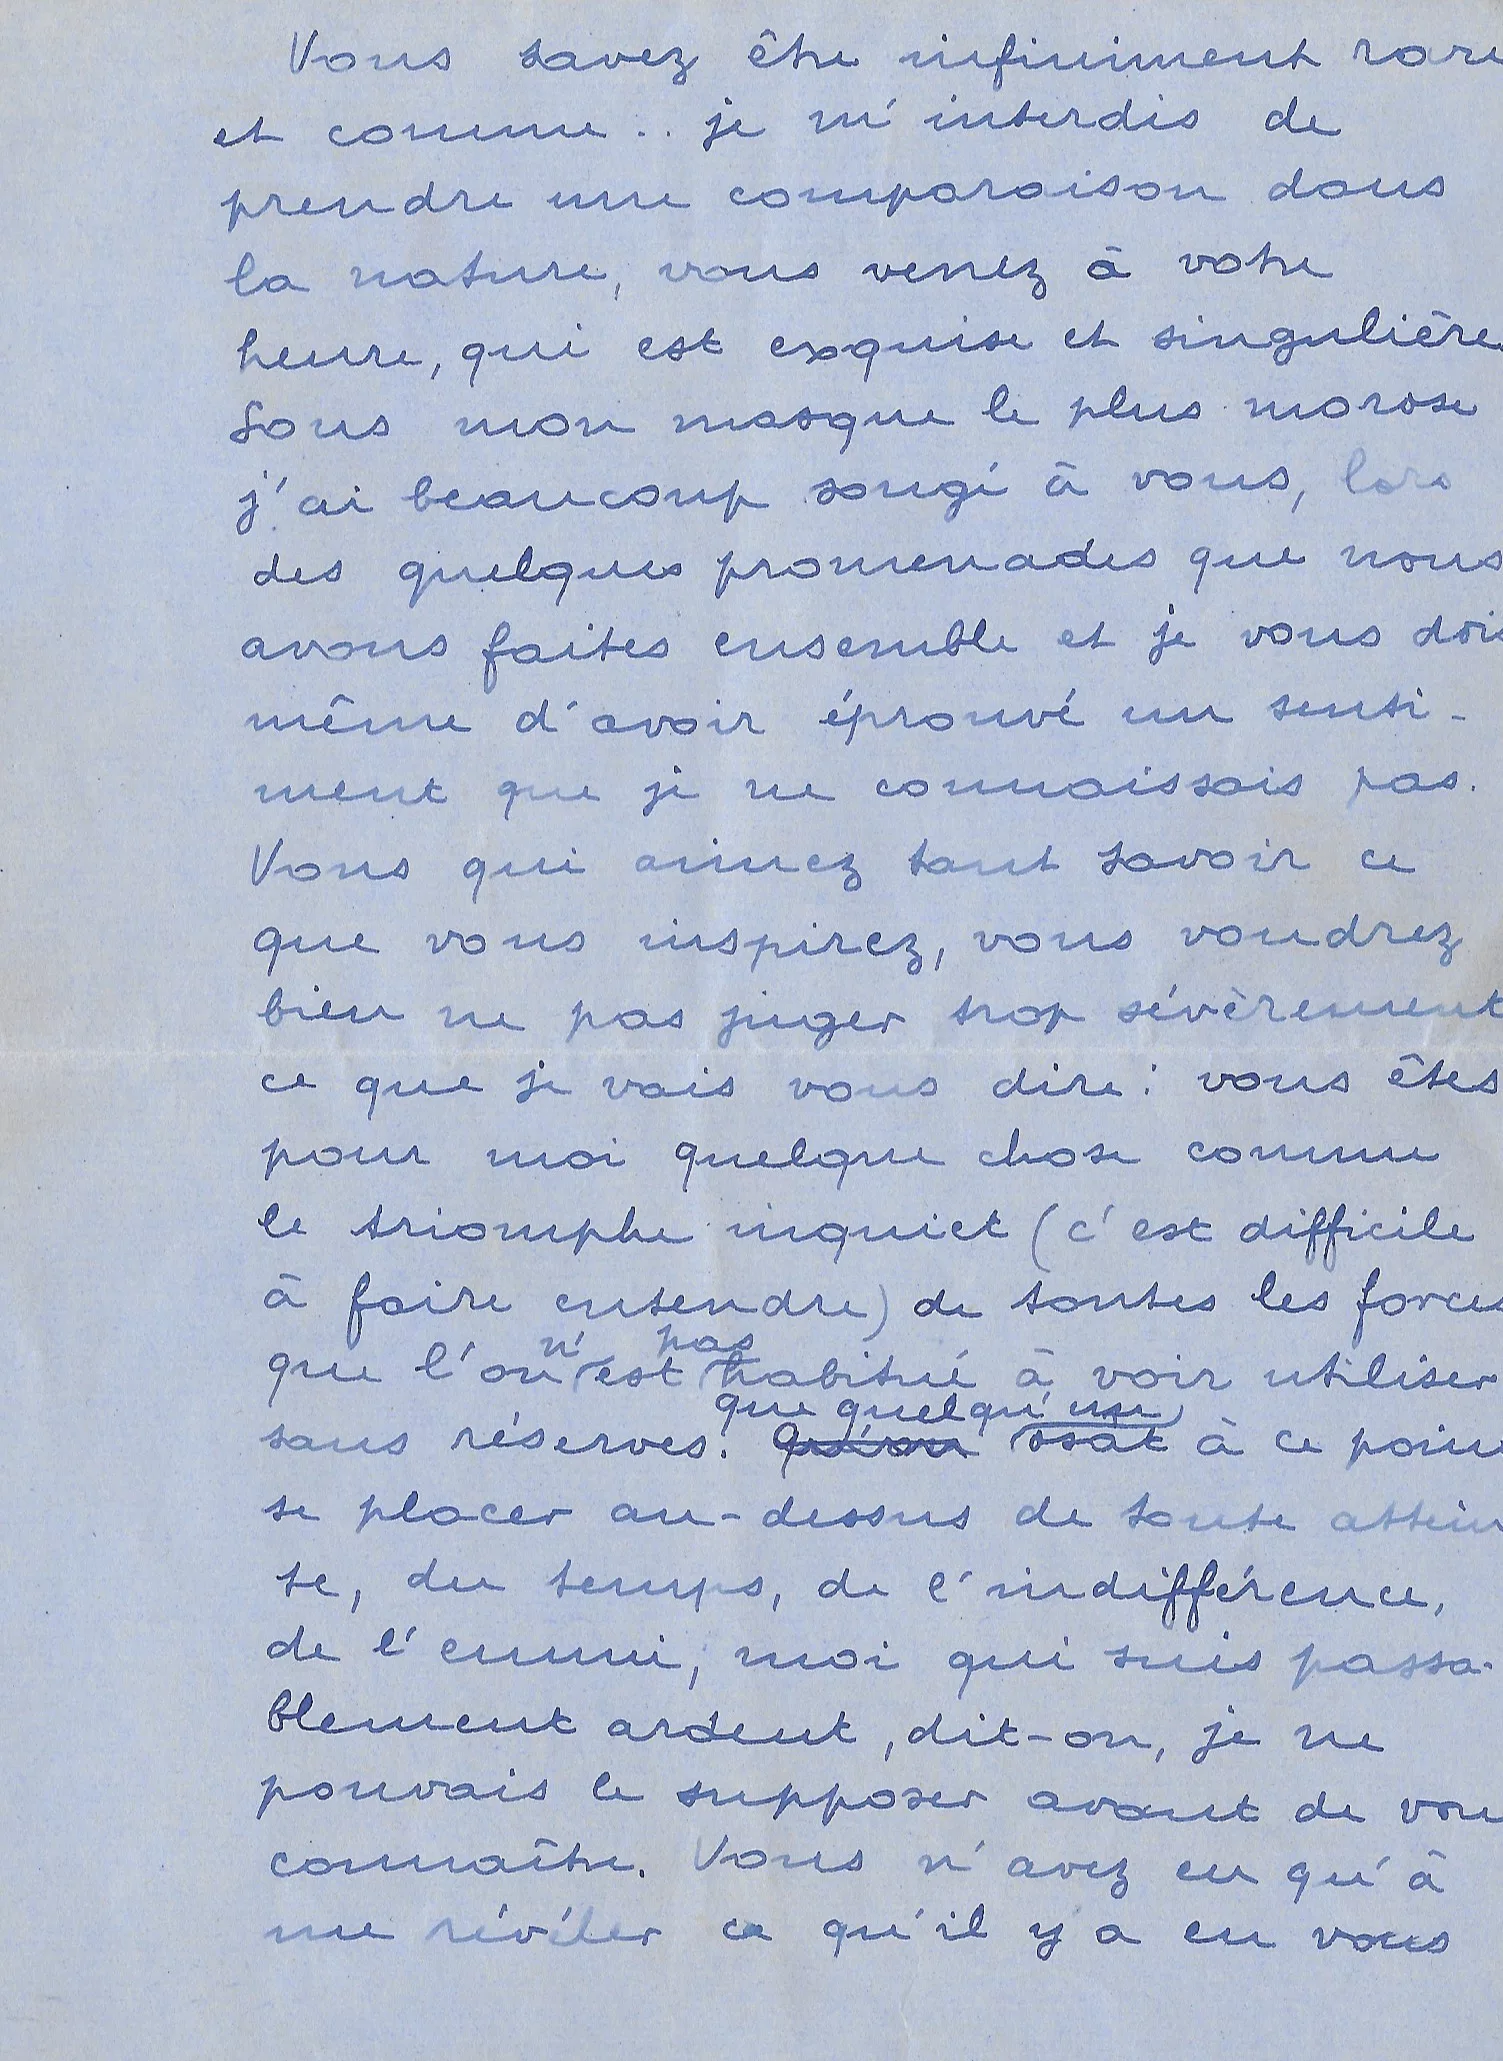 Vous savez être infiniment rare
et comme .. je m'interdis de
prendre une comparaison dans
la nature, vous venez à votre
heure, qui est exquise et singulière.
Sous mon masque le plus morose
j'ai beaucoup songé à vous, lors
des quelques promenades que nous
avons faites ensemble et je vous dois
même d'avoir éprouvé un senti-
ment que je ne connaissais pas.
Vous qui aimez tant savoir ce
que vous inspirez, vous voudrez
bien ne pas juger trop sévèrement
ce que je vais vous dire : vous êtes
pour moi quelque chose comme
le triomphe inquiet (c'est difficile
à faire entendre) de toutes les forces
n' pas
que l'on est habitué à voir utiliser
que quelqu'un
sans réserves. Qu'on osât à ce poin
se placer au-dessus de toute attein
te, du temps, de l'indifférence,
de l'ennui, moi qui suis passa-
blement ardent, dit-on, je ne
pouvais le supposer avant de vou
connaître. Vous n'avez eu qu'à
me révéler ce qu'il y a en vous